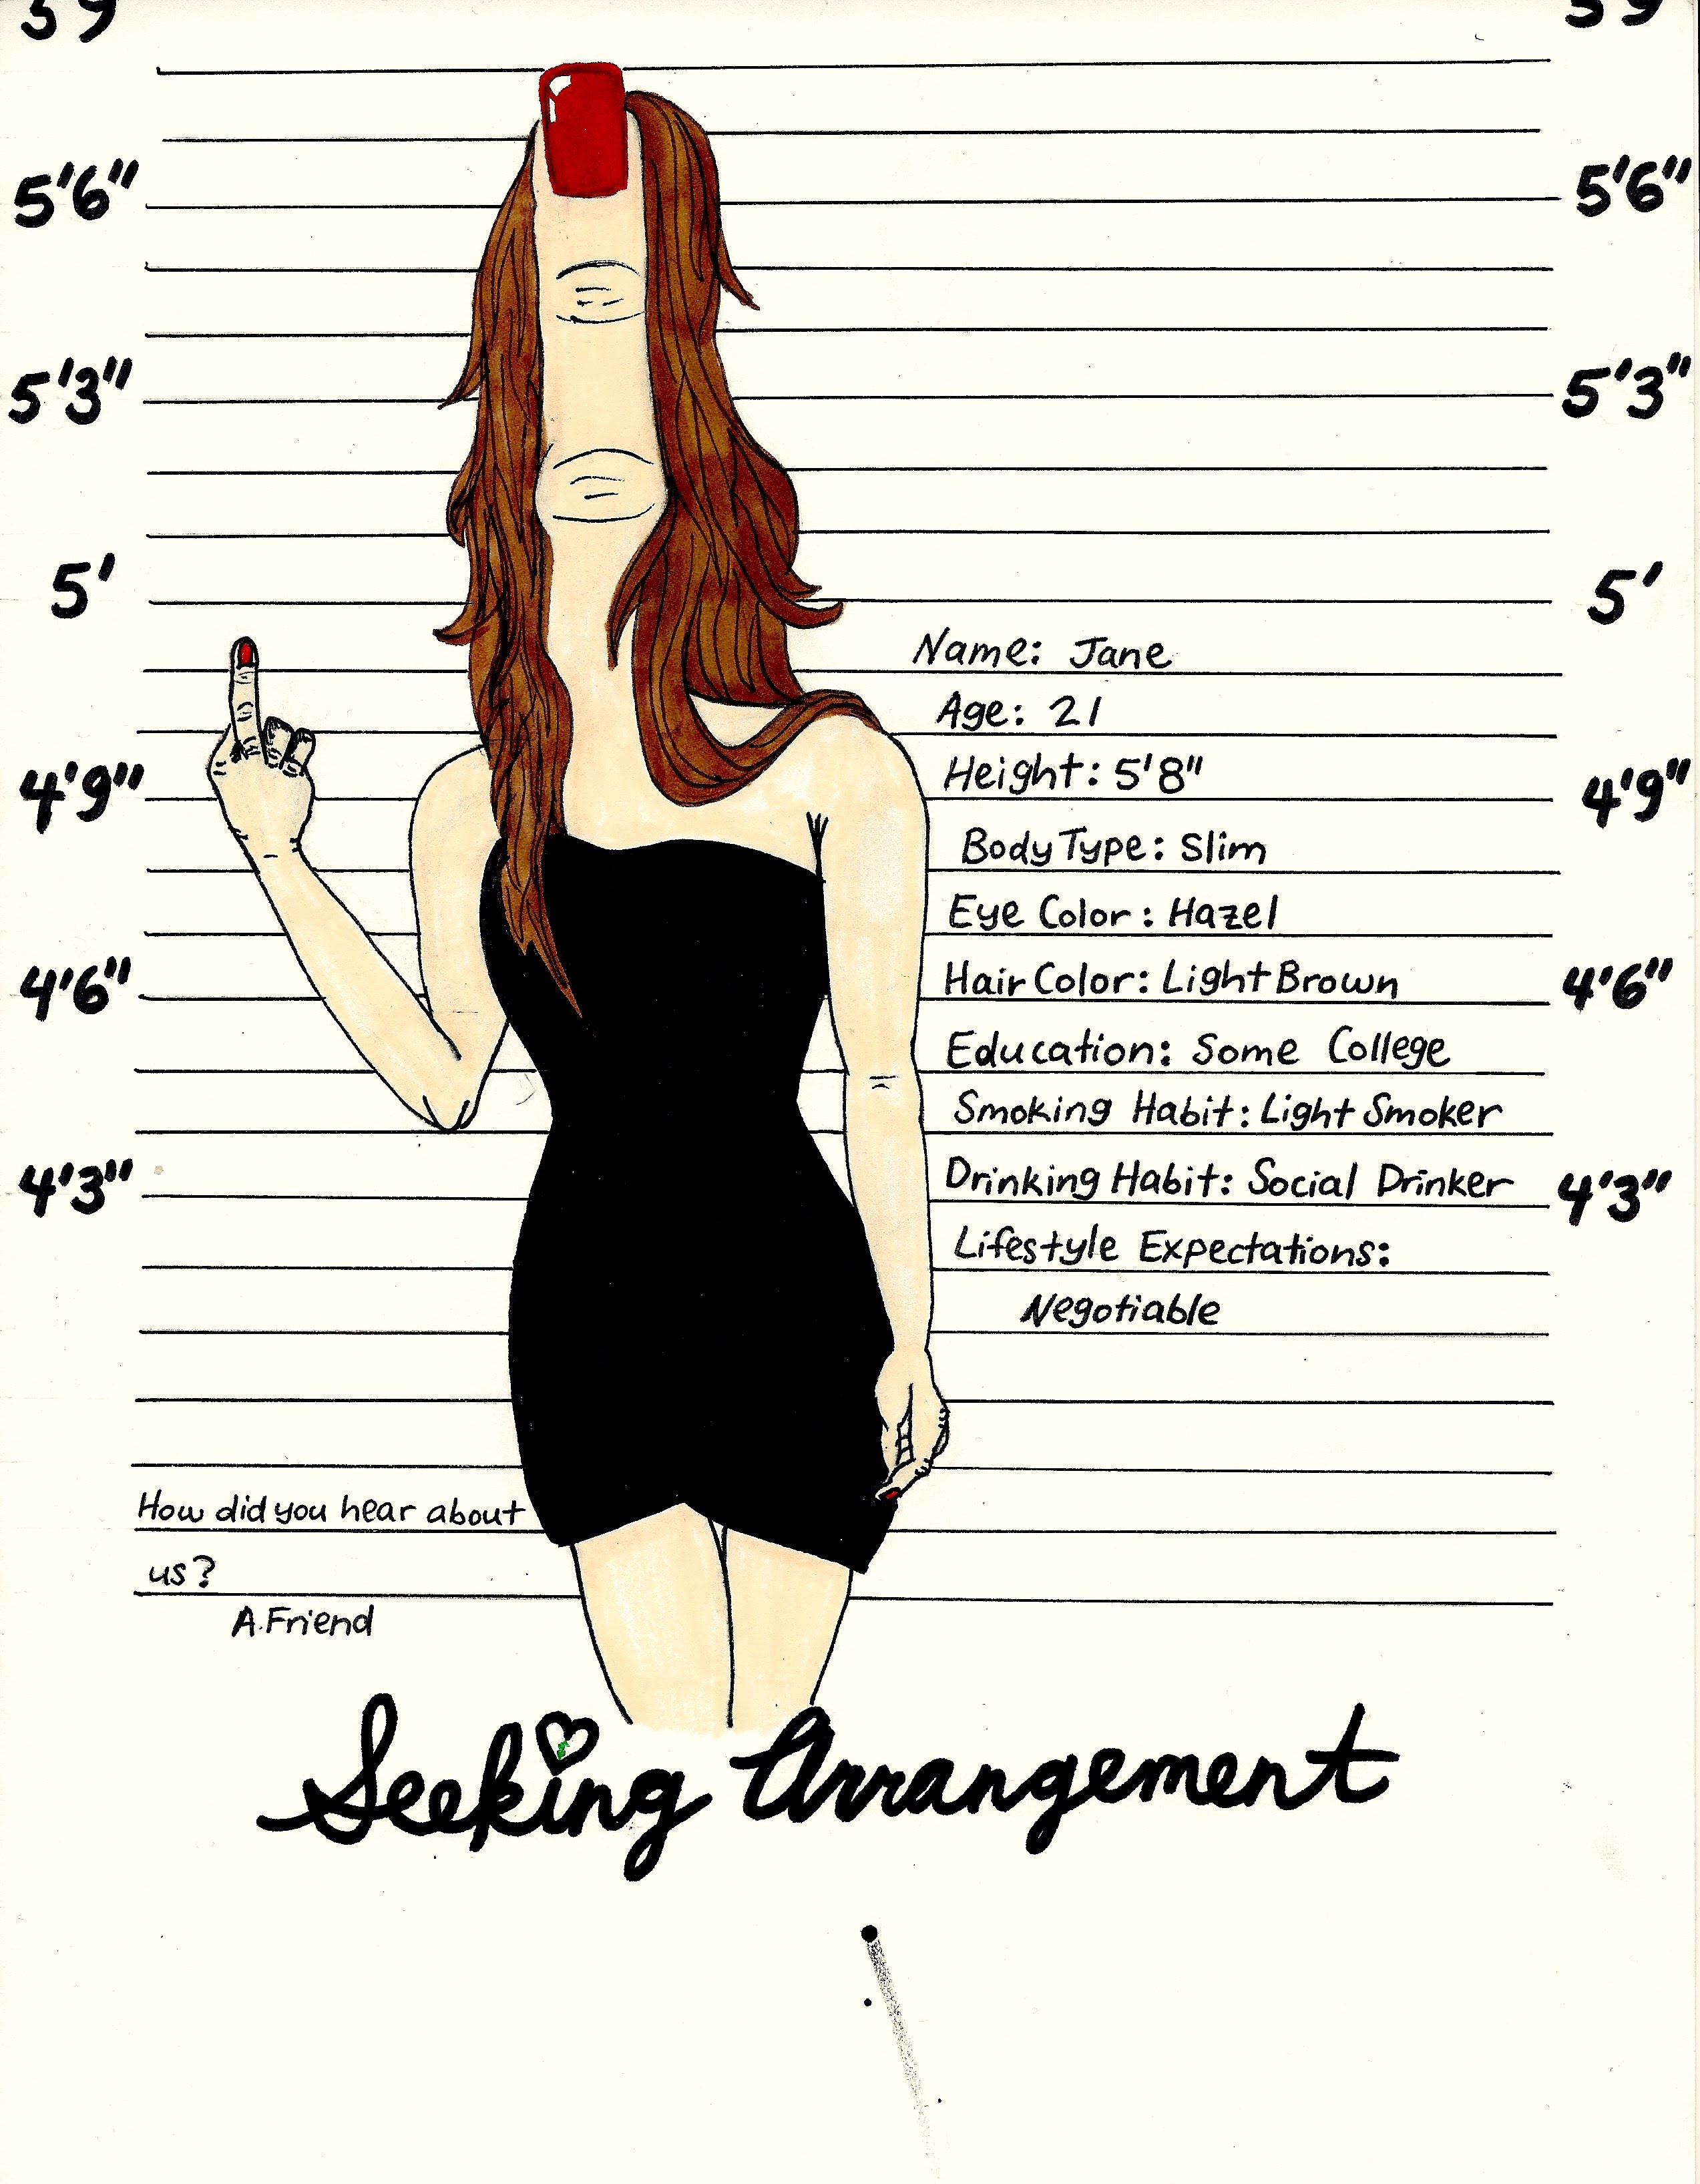 5'9 5'9
5'6" 5'6"
5'3" 5'3"
5' 5'
Name: Jane
Age: 21
4'9" 4'9"
Height: 5'8"
Body Type: Slim
Eye Color: Hazel
4'6" 4'6"
Hair Color: Light Brown
Education: Some College
Smoking Habit: Light Smoker
4'3" 4'3"
Drinking Habit: Social Drinker
Lifestyle Expectations:
Negotiable
How did you hear about
us?
A.Friend
Seeking Arrangement